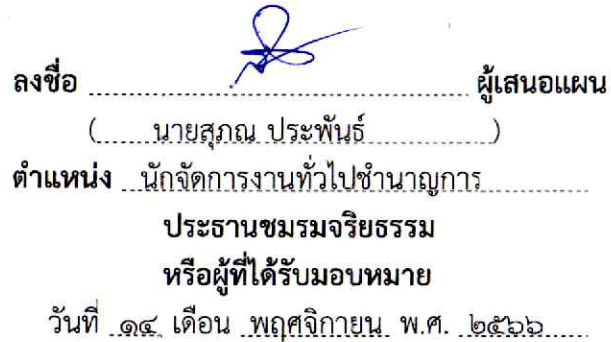 ลงชื่อ ผู้เสนอแผน
( นายสุภณ ประพันธ์ )
ตำแหน่ง นักจัดการงานทั่วไปชำนาญการ
ประธานชมรมจริยธรรม
หรือผู้ที่ได้รับมอบหมาย
วันที่ ๑๔ เดือน พฤศจิกายน พ.ศ. ๒๕๖๖